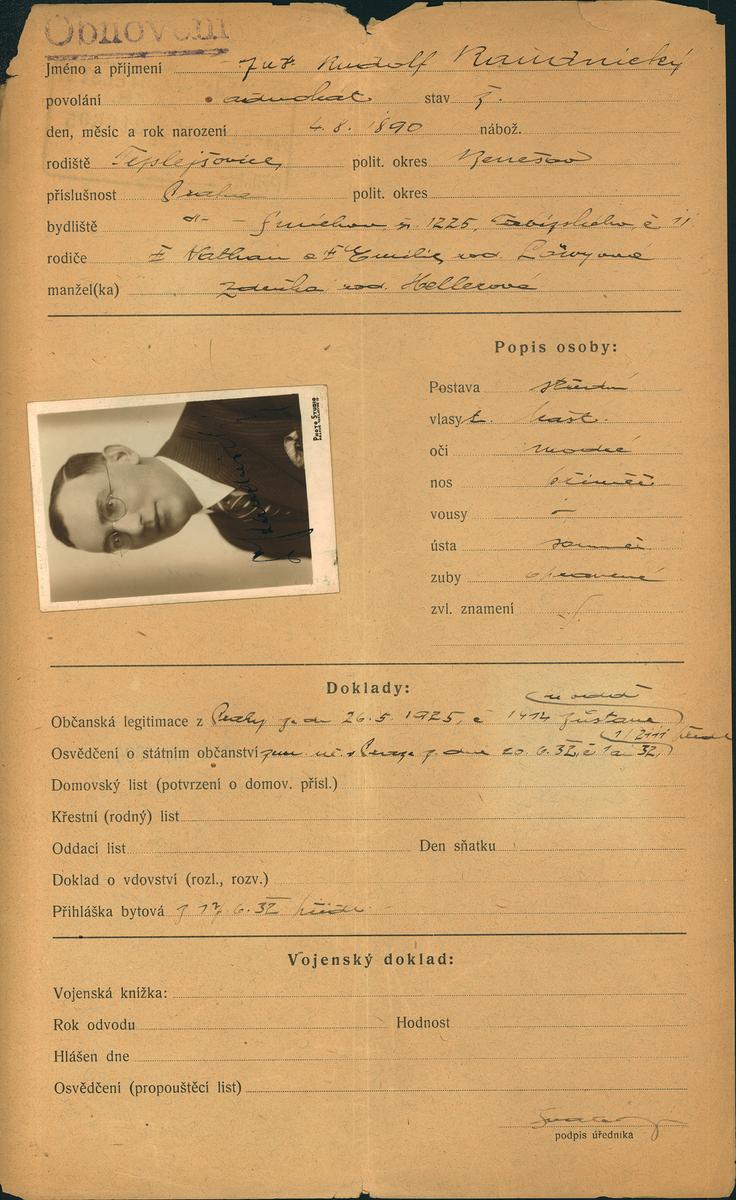 Obnovení
Jméno a příjmení JUDr Rudolf Raudnický
povolání advokát stav ž.
den, měsíc a rok narození 4. 8. 1890 nábož.
rodiště Teplejšovice, polit. okres Benešov
příslušnost Praha polit. okres
bydliště -"- - Smíchov čp. 1225, č 11
rodiče Nathan a Emilie, roz. Löwyová
manžel(ka) Zdeňka roz. Hellerová
Popis osoby:
Postava střední
vlasy t. kašt.
oči modré
nos přiměř.
vousy -
ústa souměr.
zuby opravené
zvl. znamení
PHOTO STUDIO
Doklady:
Občanská legitimace z Prahy ze dne 26. 5. 1925, č 1414 zůstane
Osvědčení o státním občanství z dne 20. 6. 32, č 1a 32.
Domovský list (potvrzení o domov. přísl.)
Křestní (rodný) list
Oddací list Den sňatku
Doklad o vdovství (rozl., rozv.)
Přihláška bytová z 17. 6. 32
Vojenský doklad:
Vojenská knížka:
Rok odvodu Hodnost
Hlášen dne
Osvědčení (propouštěcí list)
podpis úředníka